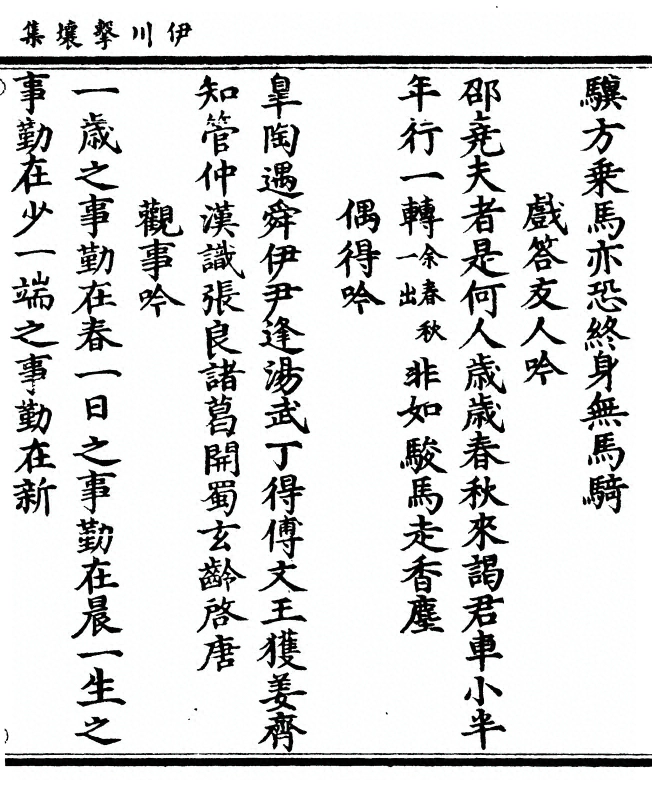 伊川擊壤集
驥方乗馬亦恐終身無馬騎
戲答友人吟
邵堯夫者是何人歲歲春秋來謁君車小半
年行一轉余春秋一出非如駿馬走香塵
偶得吟
皐陶遇舜伊尹逢湯武丁得傅文王獲姜齊
知管仲漢識張良諸葛開蜀玄齡啓唐
觀事吟
一歲之事勤在春一日之事勤在晨一生之
事勤在少一端之事勤在新